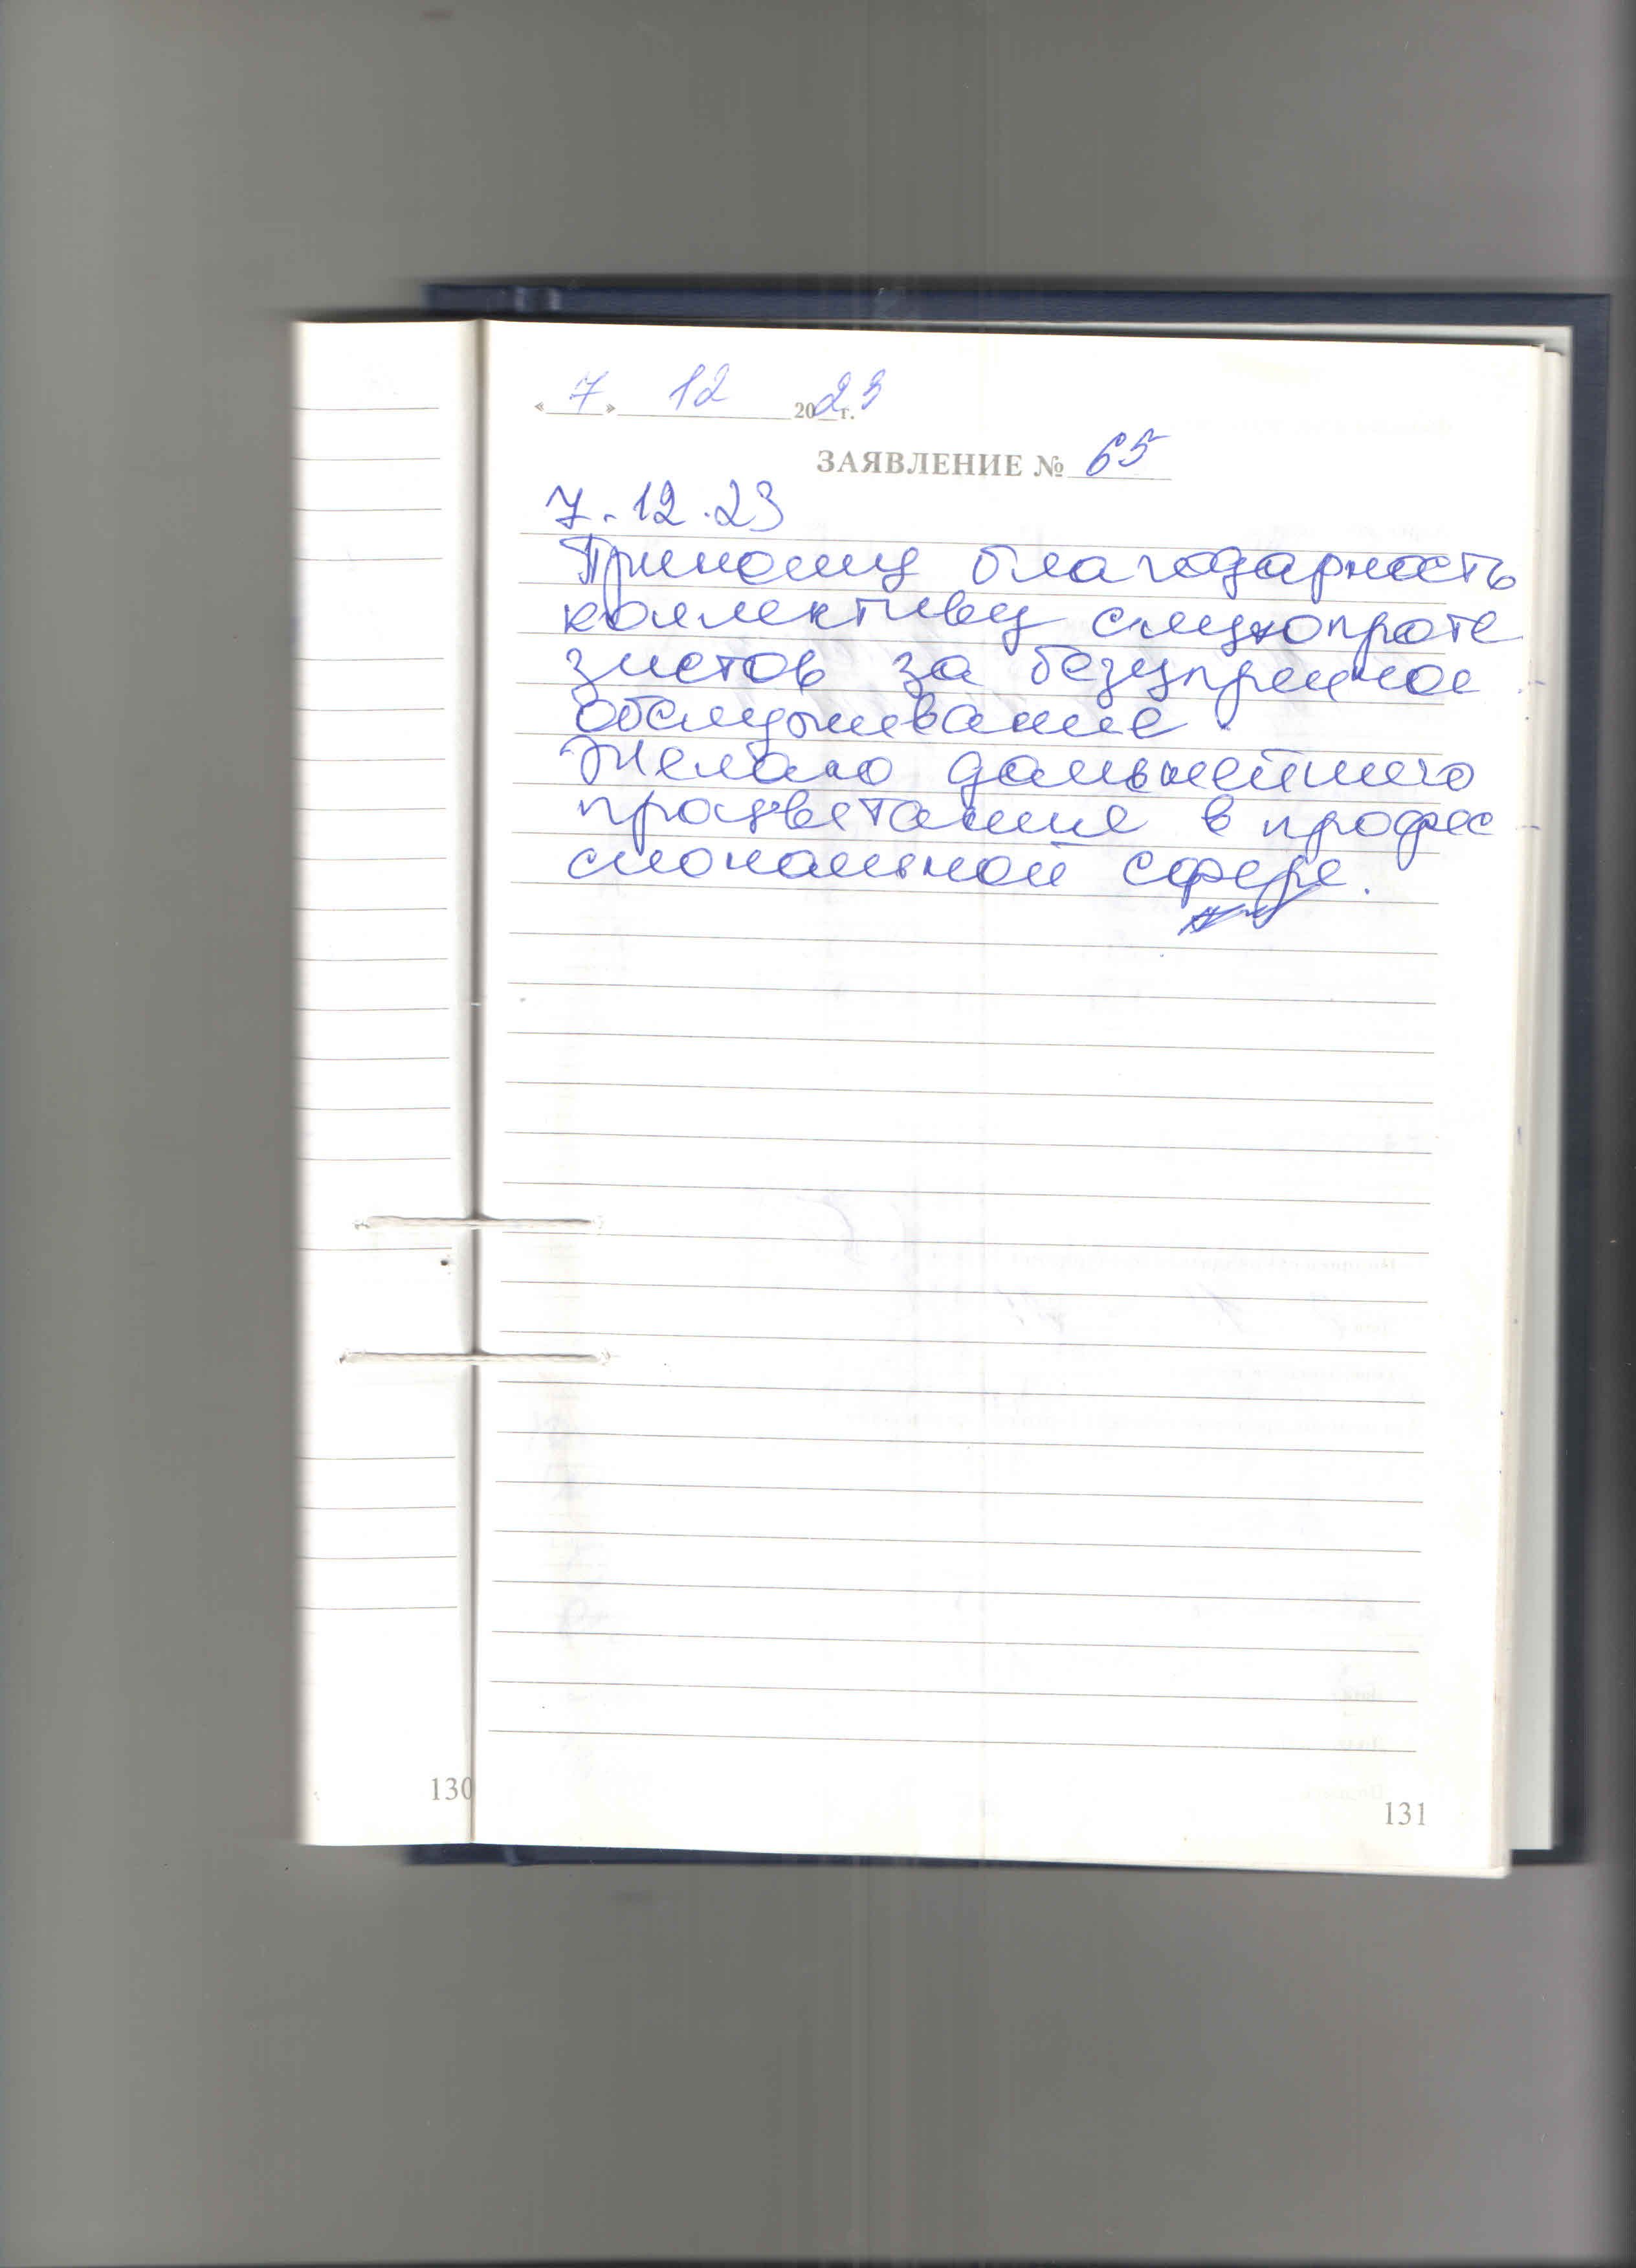 « 7 » 12 2023 г.
ЗАЯВЛЕНИЕ № 65
7.12.23
Приношу благодарность
коллективу слухопроте
зистов за безупречное
обслуживание.
Желаю дальнейшего
процветания в профес
сиональной сфере.
130
131